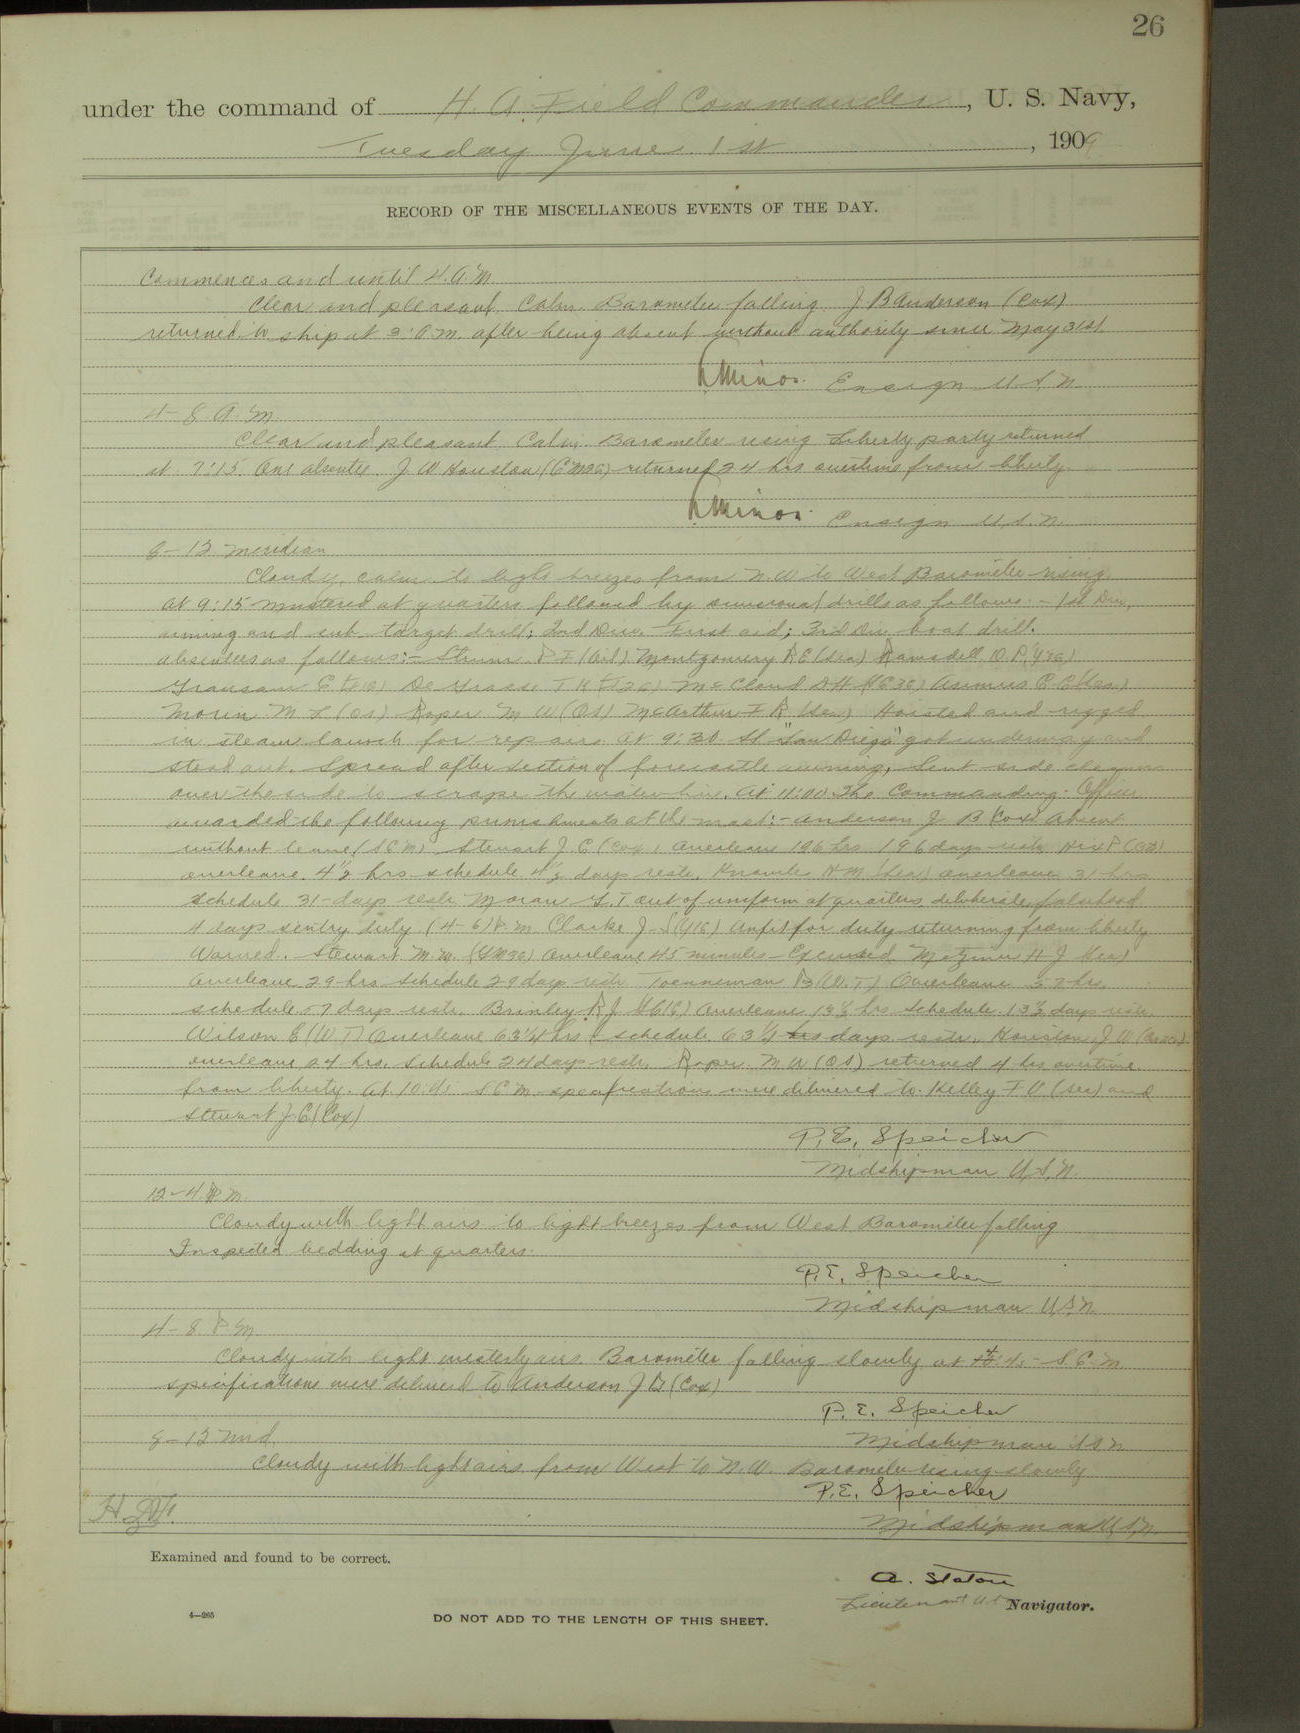 26
under the command of H. A. Field Commander, U. S. Navy,
Tuesday June 1st, 1909
RECORD OF THE MISCELLANEOUS EVENTS OF THE DAY.
Commences and until 4. A.M.
Clear and pleasant. Calm. Barometer falling. J B Anderson (Cox)
returned to ship at 3: A.M. after being absent without authority since May 31st
Minor. Ensign U.S.N.
4-8 A.M.
Clear and pleasant. Calm. Barometer rising Liberty party returned
at 7:15. One absentee. J. W Houston (GM2C) returned 24 hrs overtime from liberty.
Minor. Ensign U.S.N.
8-12 meridian
Cloudy, calm to light breezes from N.W to West Barometer rising.
At 9:15 mustered at quarters followed by divisional drills as follows:- 1st Div.
aiming and sub target drill; 2nd Div. First aid; 3rd Div boat drill.
absentees as follows:- P F (Oil) Montgomery R E (Sea) Ramsdell O P (Y3C)
E De Grasse T H McCloud A H
Moren M L (OS) Roper M W (OS) McArthur F R (Sea) Hoisted and rigged
in steam launch for repairs. At 9:30 St "San Diego" got underway and
stood out. Spread after section of forecastle awning, Sent side cleaners
over the side to scrape the water line. At 11:00 The Commanding Officer
awarded the following punishments at the mast:- Anderson J B (Cox) Absent
without leave (SCM) Stewart J. E (Cox) Overleave 196 hrs 196 days restr. P (OS)
overleave. 4½ hrs schedule 4½ days restr. Knowles H M (Sea) overleave 31 hrs
schedule 31-days restr Moran out of uniform at quarters, deliberate falsehood
4 days sentry duty (4-6) P.M. Clarke J. Unfit for duty returning from liberty
Warned. Stewart M. M. (GM3C) Overleave 45 minutes - Excused. H J (Sea)
Overleave 29-hrs schedule 29 days restr Toenneman B (W.T) Overleave 57 hrs.
schedule 57 days restr. Brinley R J Overleave 13½ hrs Schedule 13½ days restr.
Wilson E (W T) Overleave 63¼ hrs schedule 63¼ days restr. Houston J W (GM2C)
overleave 24 hrs. Schedule 24 days restr. Roper M W (OS) returned 4 hrs overtime
from liberty. At 10:45 S C M specifications were delivered to Kelley F V (Sea) and
Stewart J. E (Cox)
P. E. Speicher
Midshipman U.S.N.
12-4 P.M.
Cloudy with light airs to light breezes from West Barometer falling
Inspected bedding at quarters.
P. E. Speicher
Midshipman U.S.N.
4-8 P.M
Cloudy with light westerly airs. Barometer falling slowly at S C M
specifications were delivered to Anderson J B (Cox)
P. E. Speicher
Midshipman U S N
8-12 mid
Cloudy with light airs from West to N.W. Barometer rising slowly
P. E. Speicher
Midshipman U.S.N.
Examined and found to be correct.
A. Staton
Lieutenant U.S.N. Navigator.
4—265
DO NOT ADD TO THE LENGTH OF THIS SHEET.